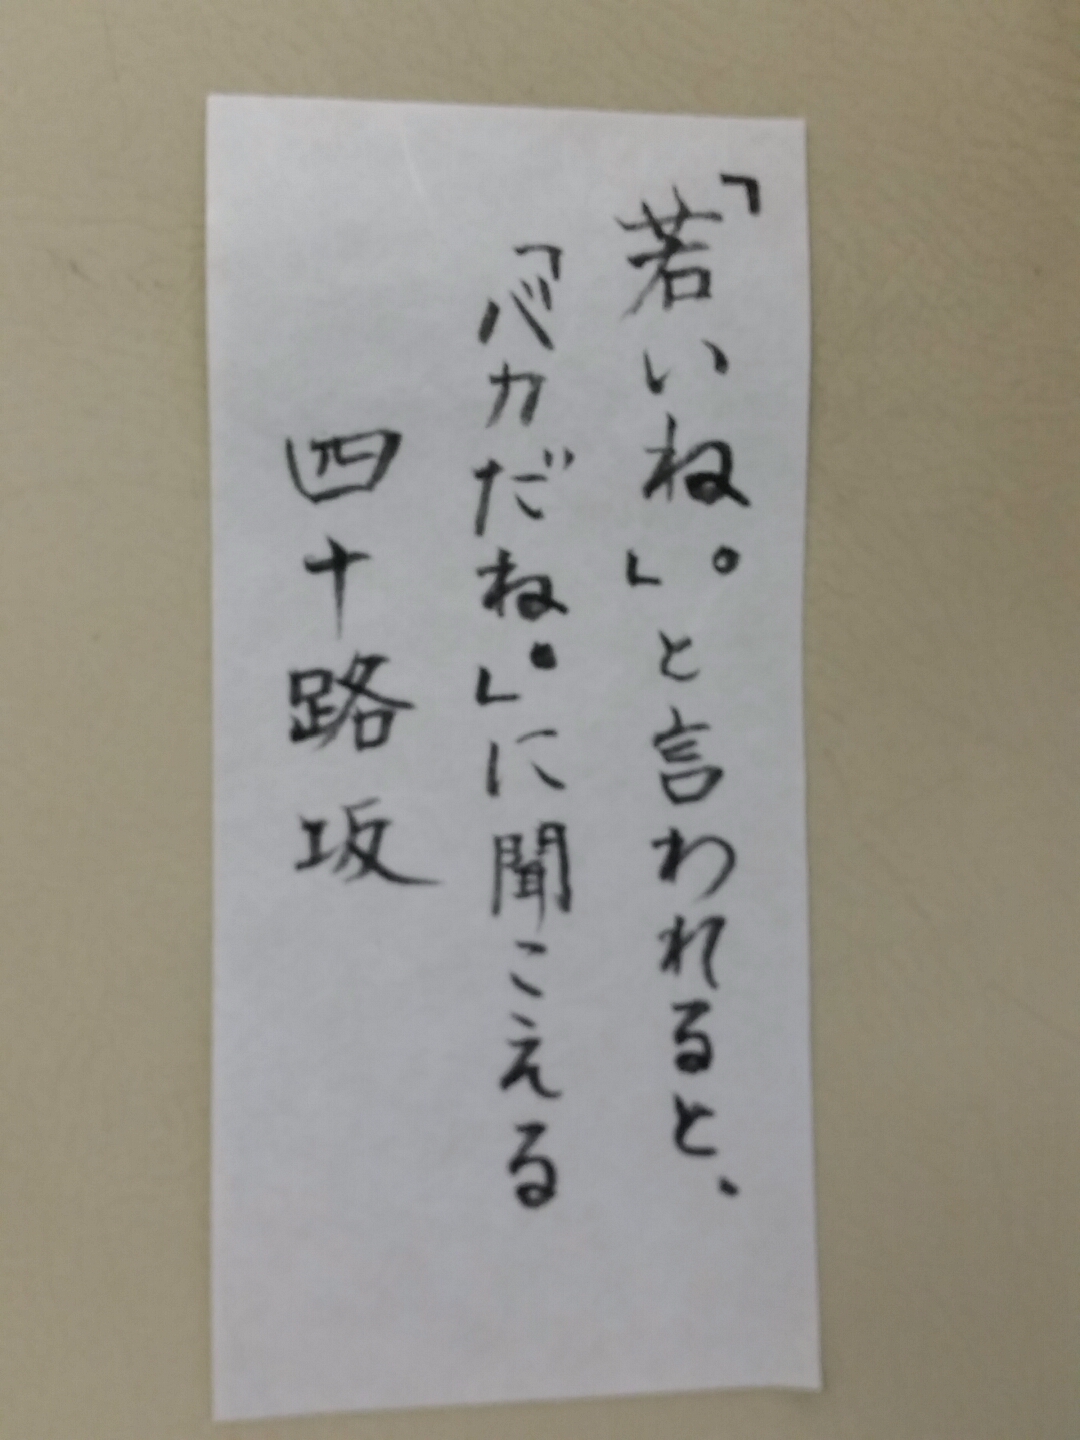 「若いね。」と言われると、
「バカだね。」に聞こえる
四十路坂